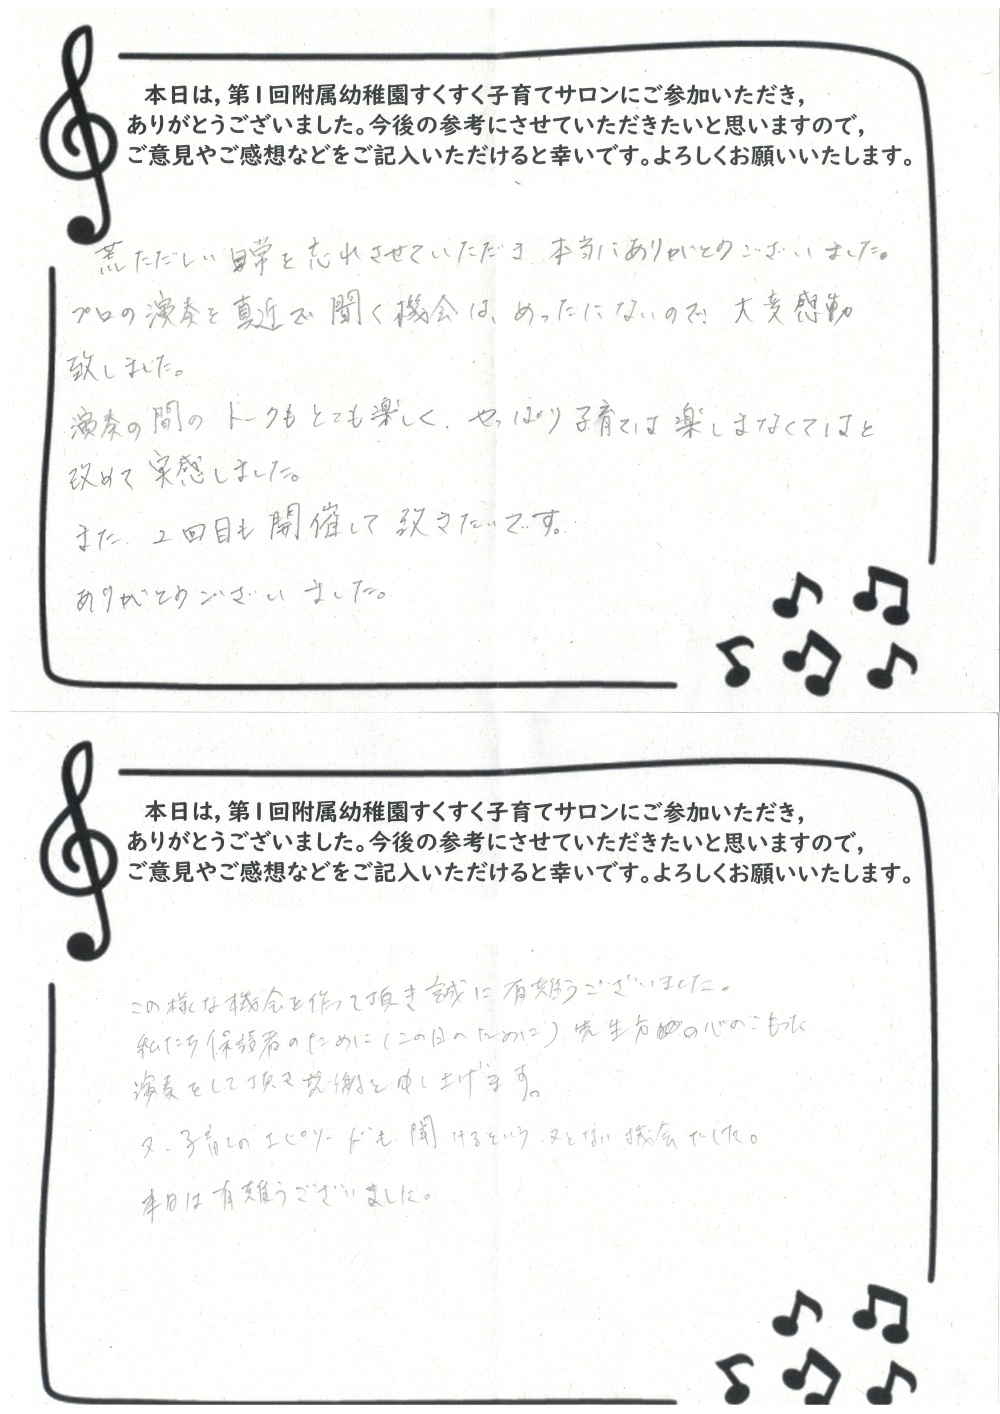 本日は，第1回附属幼稚園すくすく子育てサロンにご参加いただき，
ありがとうございました。今後の参考にさせていただきたいと思いますので，
ご意見やご感想などをご記入いただけると幸いです。よろしくお願いいたします。
荒ただしい日常を忘れさせていただき 本当にありがとうございました。
プロの演奏を真近で聞く機会は、めったにないので、大変感動
致しました。
演奏の間のトークもとても楽しく、やっぱり子育ては楽しまなくてはと
改めて実感しました。
また、2回目も開催して致きたいです。
ありがとうございました。
本日は，第1回附属幼稚園すくすく子育てサロンにご参加いただき，
ありがとうございました。今後の参考にさせていただきたいと思いますので，
ご意見やご感想などをご記入いただけると幸いです。よろしくお願いいたします。
この様な機会を作って頂き誠に有難うございました。
私たち保護者のために(この日のために)先生方の心のこもった
演奏をして頂き感謝を申し上げます。
又、子育てのエピソードも聞けるという、又とない機会でした。
本日は有難うございました。